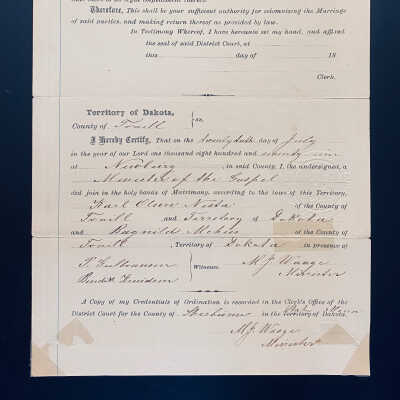 Therefore, This shall be your sufficient authority for solemnizing the Marriage
of said parties, and making return thereof as provided by law.
In Testimony Whereof, I have hereunto set my hand, and affixed
the seal of said District Court, at
this day of 18
Clerk.
Territory of Dakota,
County of Traill } ss.
I Hereby Certify, That on the day of July
in the year of our Lord one thousand eight hundred and seventy nine
at Newburg in said County, I, the undersigned, a
Minister of the Gospel
did join in the holy bands of Matrimony, according to the laws of this Territory,
Karl Olsen of the County of
Traill and Territory of Dakota
and Ragnild of the County of
Traill, Territory of Dakota in presence of
Witnesses. M J Waage
Minister
A Copy of my Credentials of Ordination is recorded in the Clerk's Office of the
District Court for the County of in the Territory of Dakota.
M J Waage
Minister